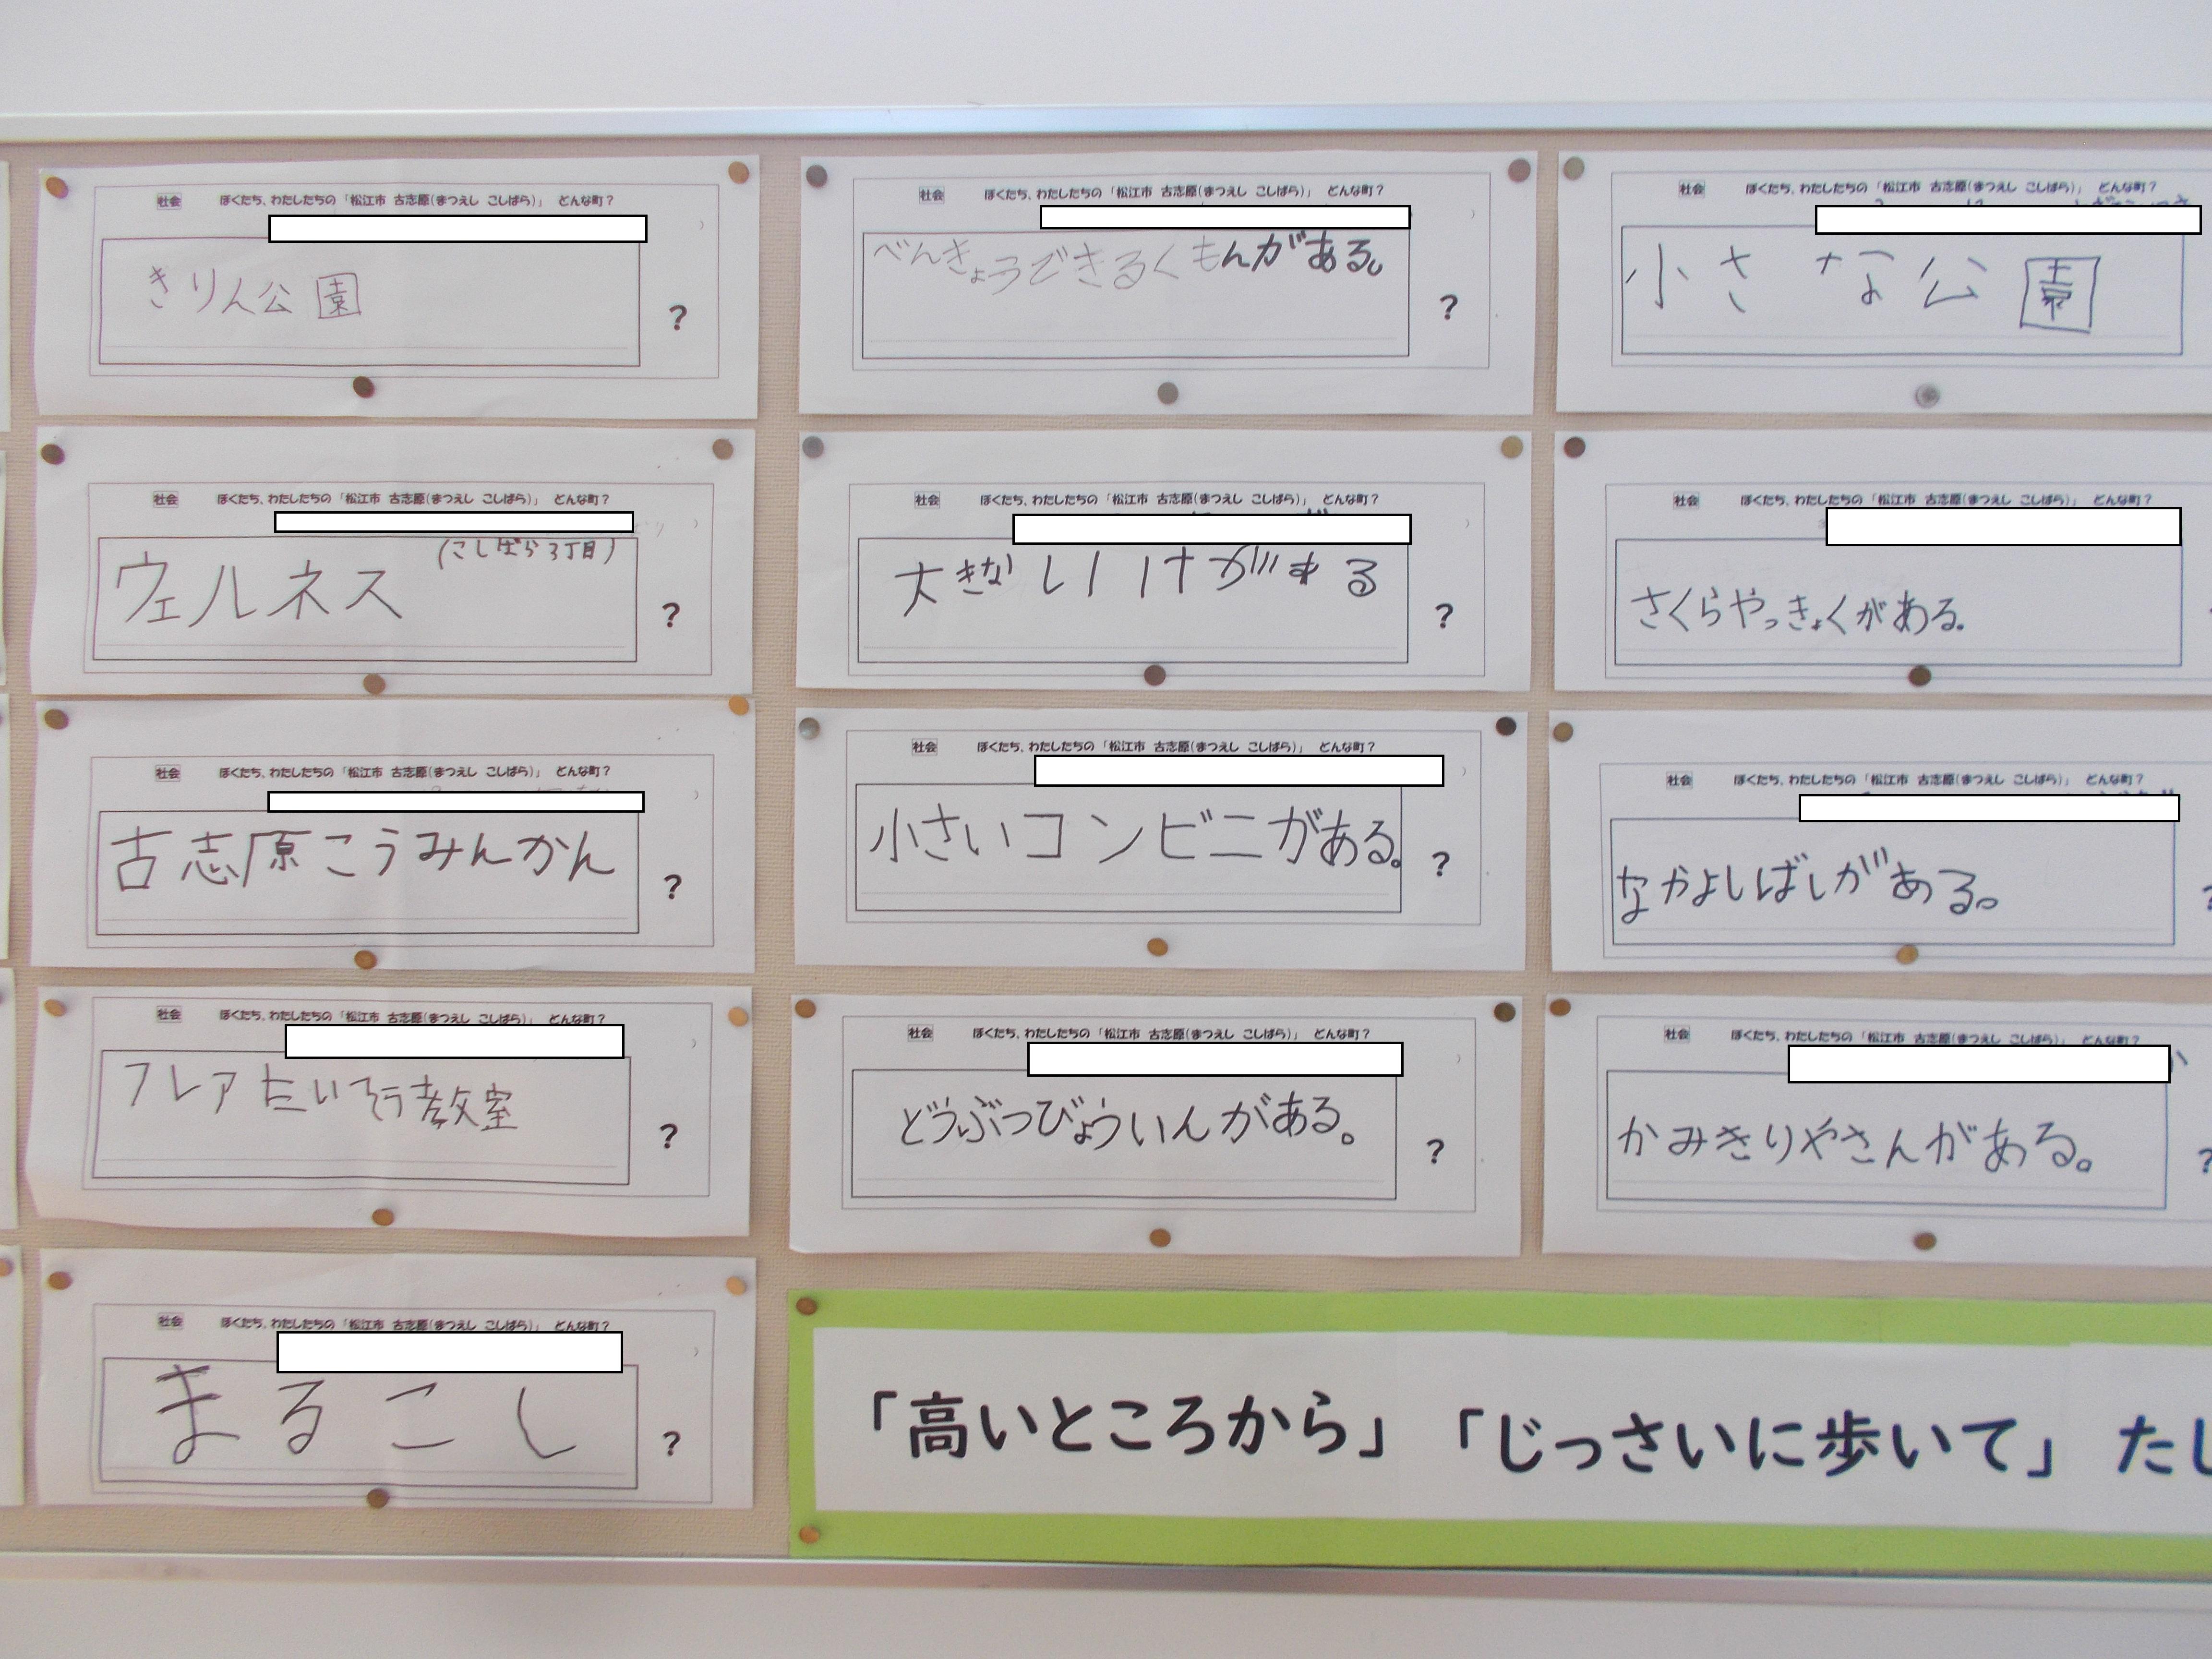 社会 ぼくたち、わたしたちの「松江市 古志原(まつえし こしばら)」 どんな町?
きりん公園
?
社会 ぼくたち、わたしたちの「松江市 古志原(まつえし こしばら)」 どんな町?
(こしばら3丁目)
ウェルネス
?
社会 ぼくたち、わたしたちの「松江市 古志原(まつえし こしばら)」 どんな町?
古志原こうみんかん
?
社会 ぼくたち、わたしたちの「松江市 古志原(まつえし こしばら)」 どんな町?
フレアたいそう教室
?
社会 ぼくたち、わたしたちの「松江市 古志原(まつえし こしばら)」 どんな町?
まるこし
?
社会 ぼくたち、わたしたちの「松江市 古志原(まつえし こしばら)」 どんな町?
べんきょうできるくもんがある。
?
社会 ぼくたち、わたしたちの「松江市 古志原(まつえし こしばら)」 どんな町?
大きないけがある
?
社会 ぼくたち、わたしたちの「松江市 古志原(まつえし こしばら)」 どんな町?
小さいコンビニがある。
?
社会 ぼくたち、わたしたちの「松江市 古志原(まつえし こしばら)」 どんな町?
どうぶつびょういんがある。
?
社会 ぼくたち、わたしたちの「松江市 古志原(まつえし こしばら)」 どんな町?
小さな公園
社会 ぼくたち、わたしたちの「松江市 古志原(まつえし こしばら)」 どんな町?
さくらやっきょくがある。
社会 ぼくたち、わたしたちの「松江市 古志原(まつえし こしばら)」 どんな町?
なかよしばしがある。
?
社会 ぼくたち、わたしたちの「松江市 古志原(まつえし こしばら)」 どんな町?
かみきりやさんがある。
?
「高いところから」「じっさいに歩いて」たし